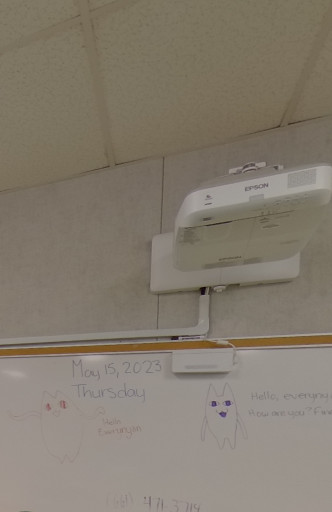 EPSON
May 15, 2023
Thursday
Hello
Everyone
Hello, everyone
How are you? Fine